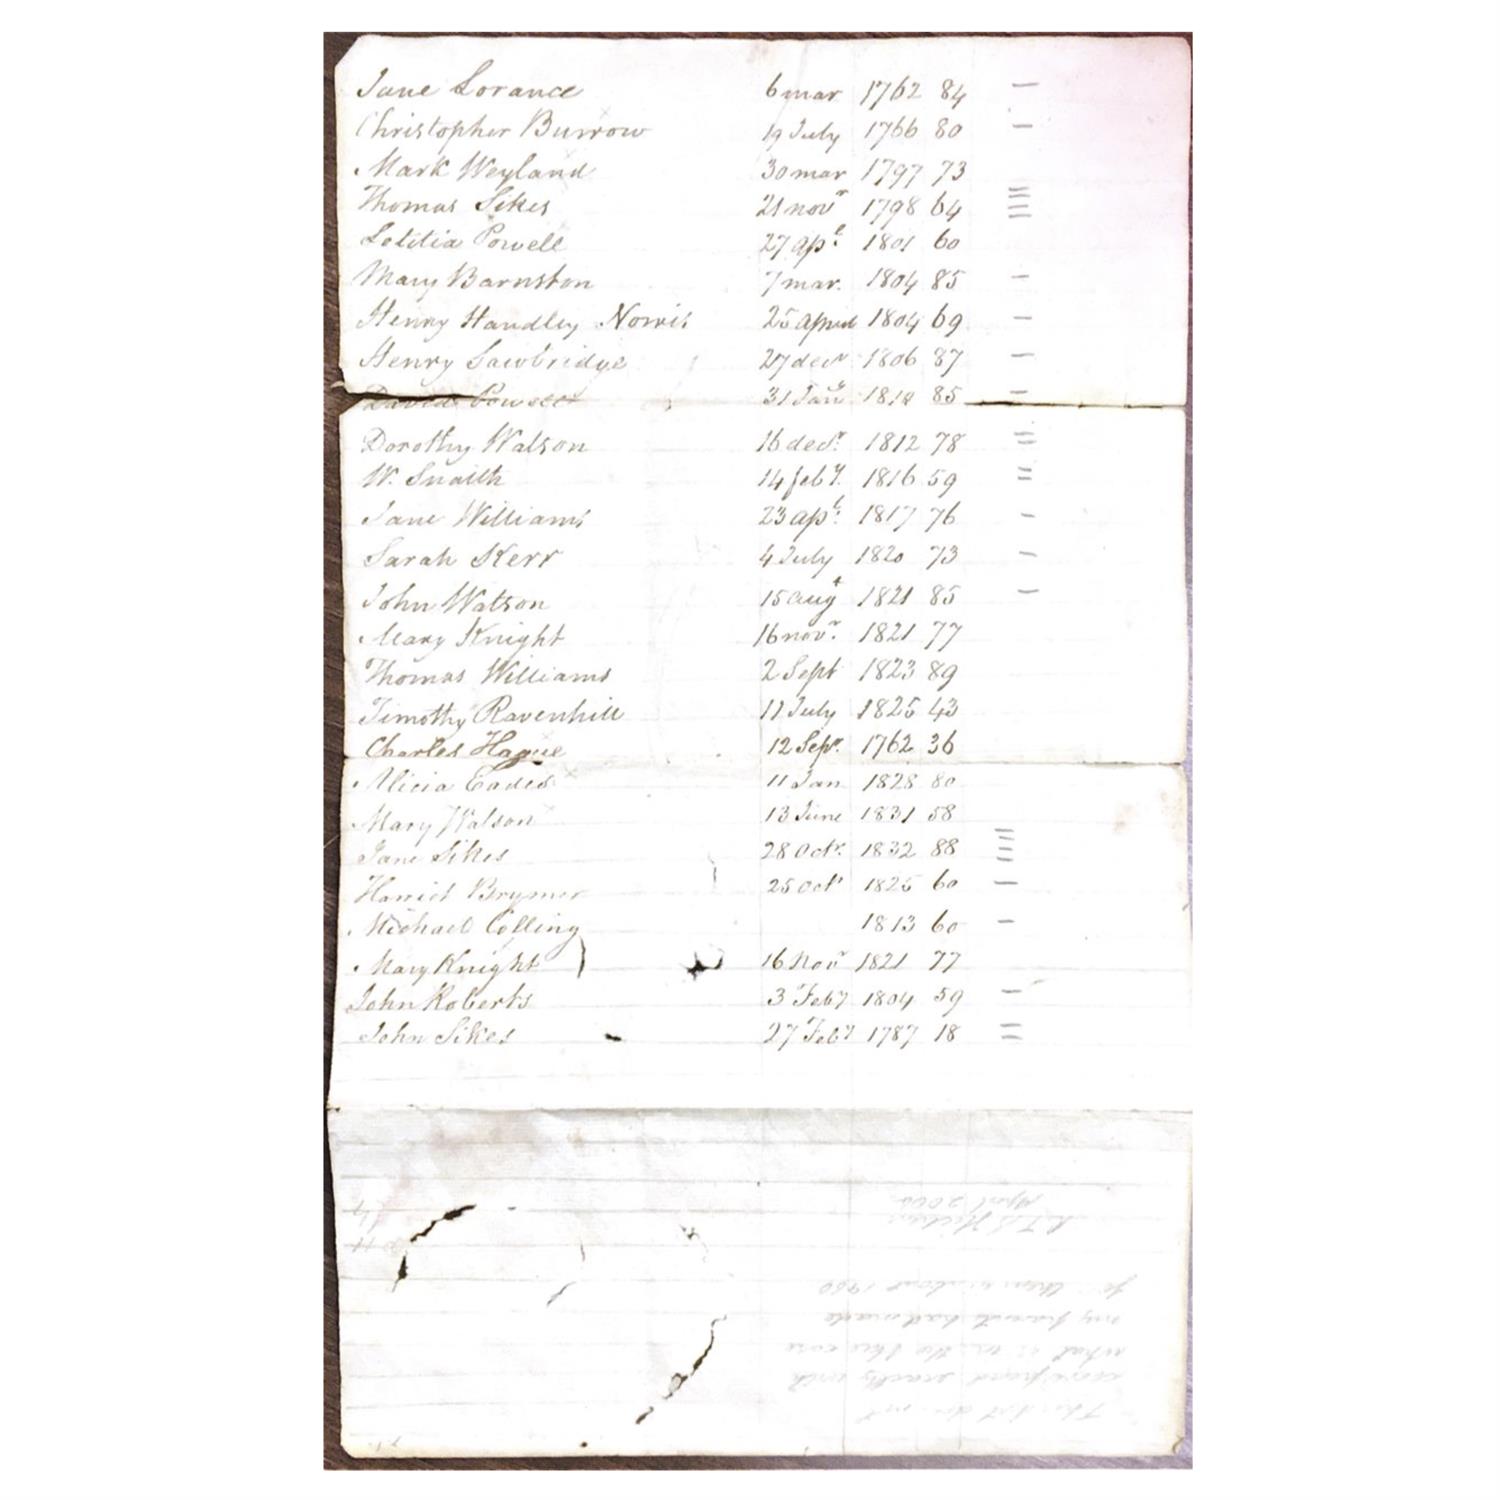 Jane Lorance 6 mar 1762 84 —
Christopher Burrow 19 July 1766 80 —
Mark Weyland 30 mar 1797 73
Thomas Sikes 21 novr 1798 64
Letitia Powell 27 apl. 1801 60
Mary Barnston 7 mar. 1804 85 —
Henry Handley Norris 25 April 1804 69 —
Henry Sawbridge 27 decr 1806 87 —
David Powell 31 Jany 1812 85 —
Dorothy Watson 16 decr. 1812 78 =
W. Snaith 14 feby. 1816 59 =
Jane Williams 23 apl. 1817 76 -
Sarah Kerr 4 July 1820 73 —
John Watson 15 augt 1821 85 —
Mary Knight 16 novr. 1821 77
Thomas Williams 2 Sept 1823 89
Timothy Ravenhill 11 July 1825 43
Charles Hague 12 Sepr. 1762 36
Alicia Eades 11 Jan 1828 80
Mary Watson 13 June 1831 58
Jane Sikes 28 Octr. 1832 88
Harriet Brymer 25 Octr 1825 60 —
Michael Colling 1813 60 —
Mary Knight 16 Novr 1821 77
John Roberts 3 Feby 1804 59 —
John Sikes 27 Feby 1787 18 =
April 2000
my parents had made
what is in the
exactly with
This list does not